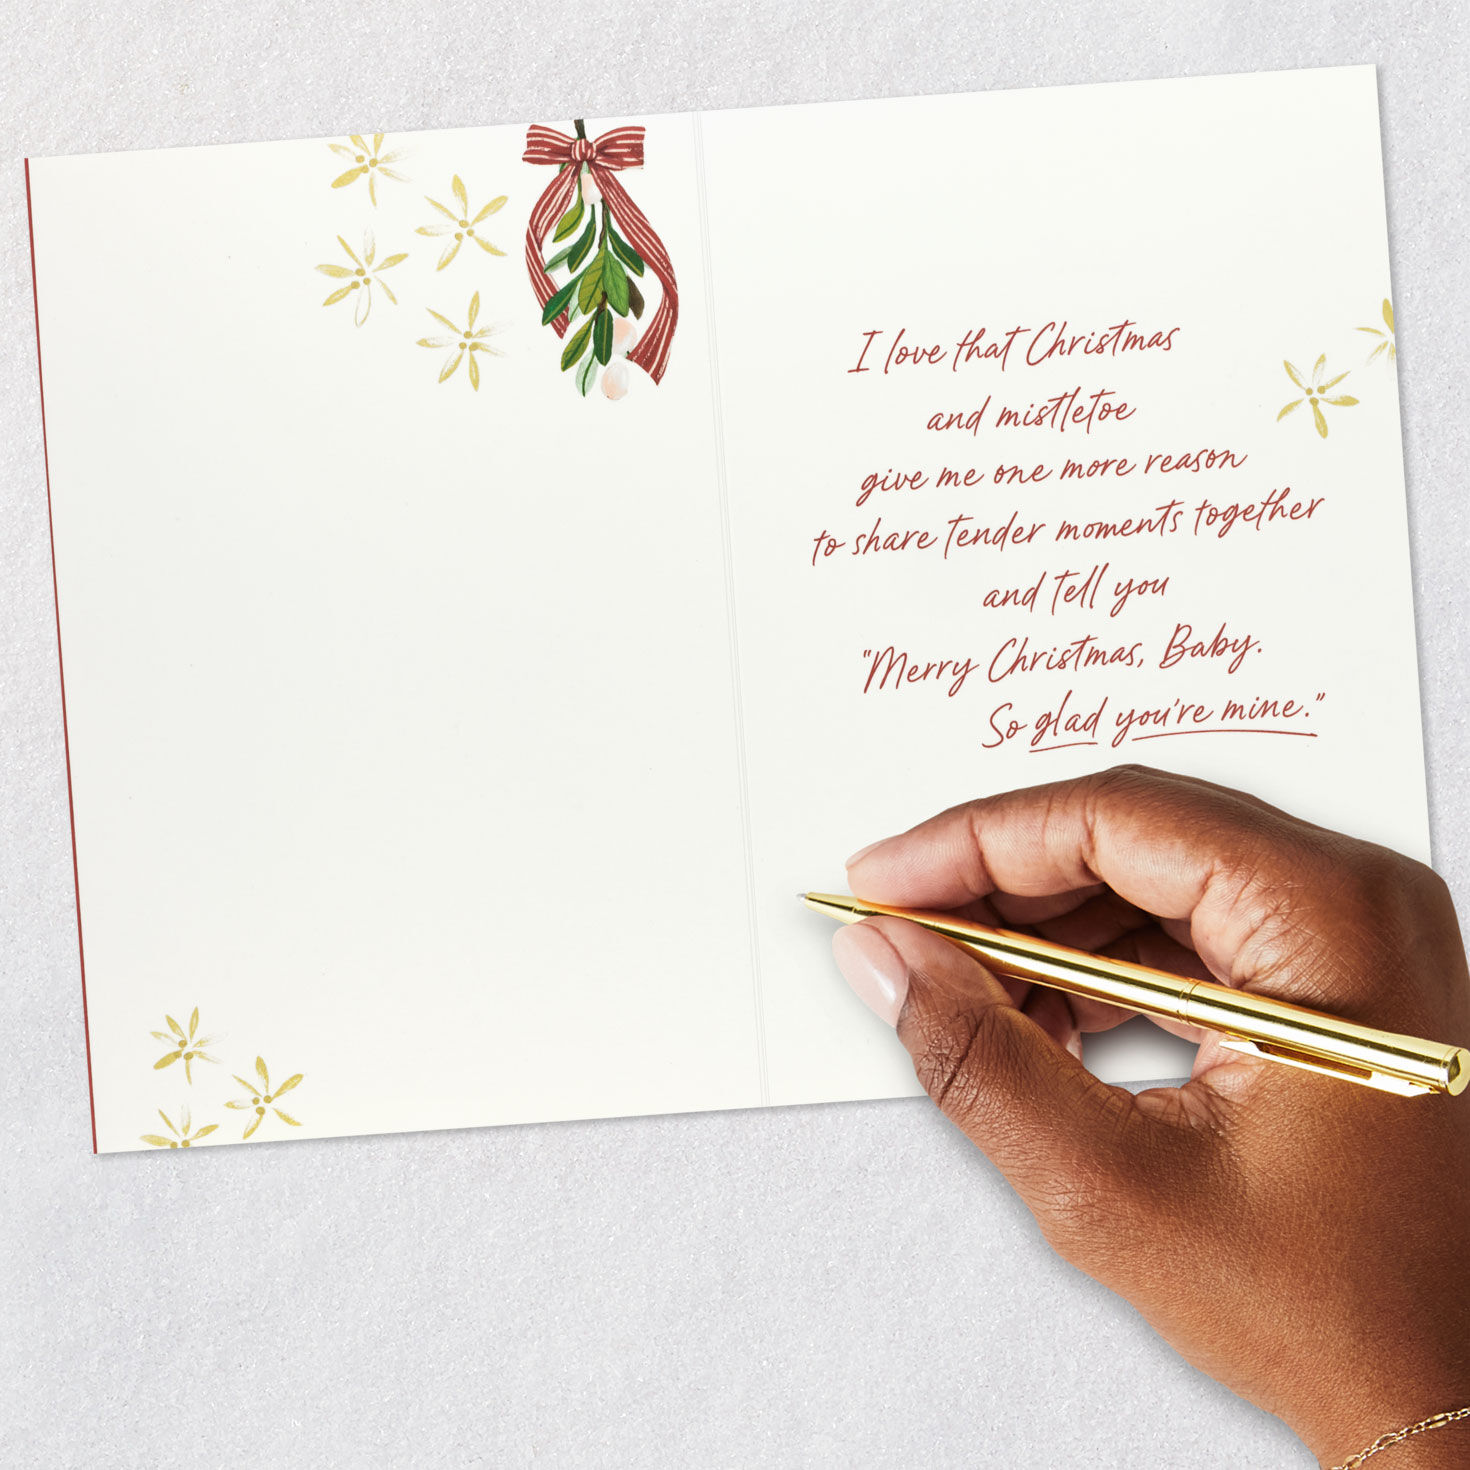 I love that Christmas
and mistletoe
give me one more reason
to share tender moments together
and tell you
"Merry Christmas, Baby.
So glad you're mine."